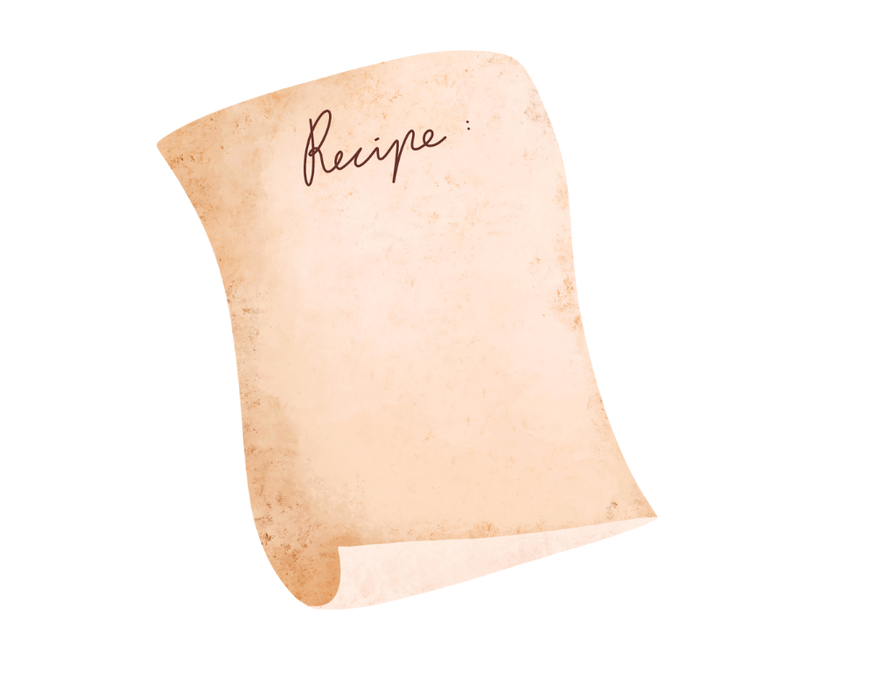 Recipe :